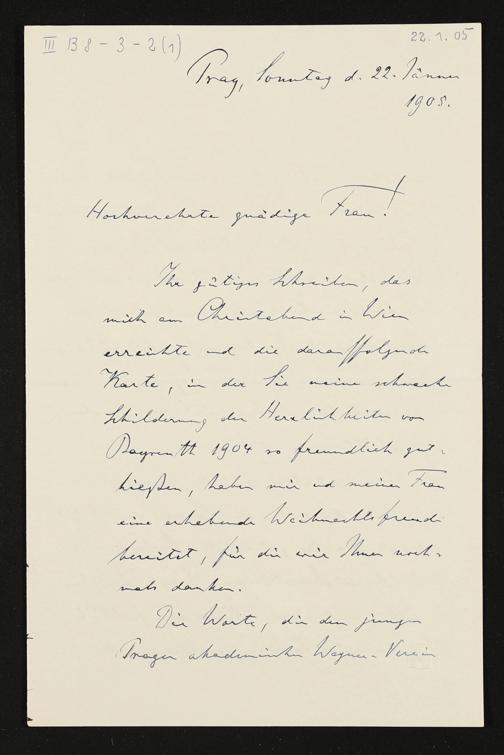 III B 8 - 3 - 2 (1)
22. 1. 05
Prag, Sonntag d. 22. Jänner
1905.
Hochverehrte gnädige Frau!
Ihr gütiges Schreiben, das
mich am Christabend in Wien
erreichte und die darauffolgende
Karte, in der Sie meine schwache
Schilderung der Herrlichkeiten von
Bayreuth 1904 so freundlich gut-
hießen, haben mir und meiner Frau
eine erhebende Weihnachtsfreude
bereitet, für die wir Ihnen noch-
mals danken.
Die Worte, die dem jungen
Prager akademischen Wagner-Verein